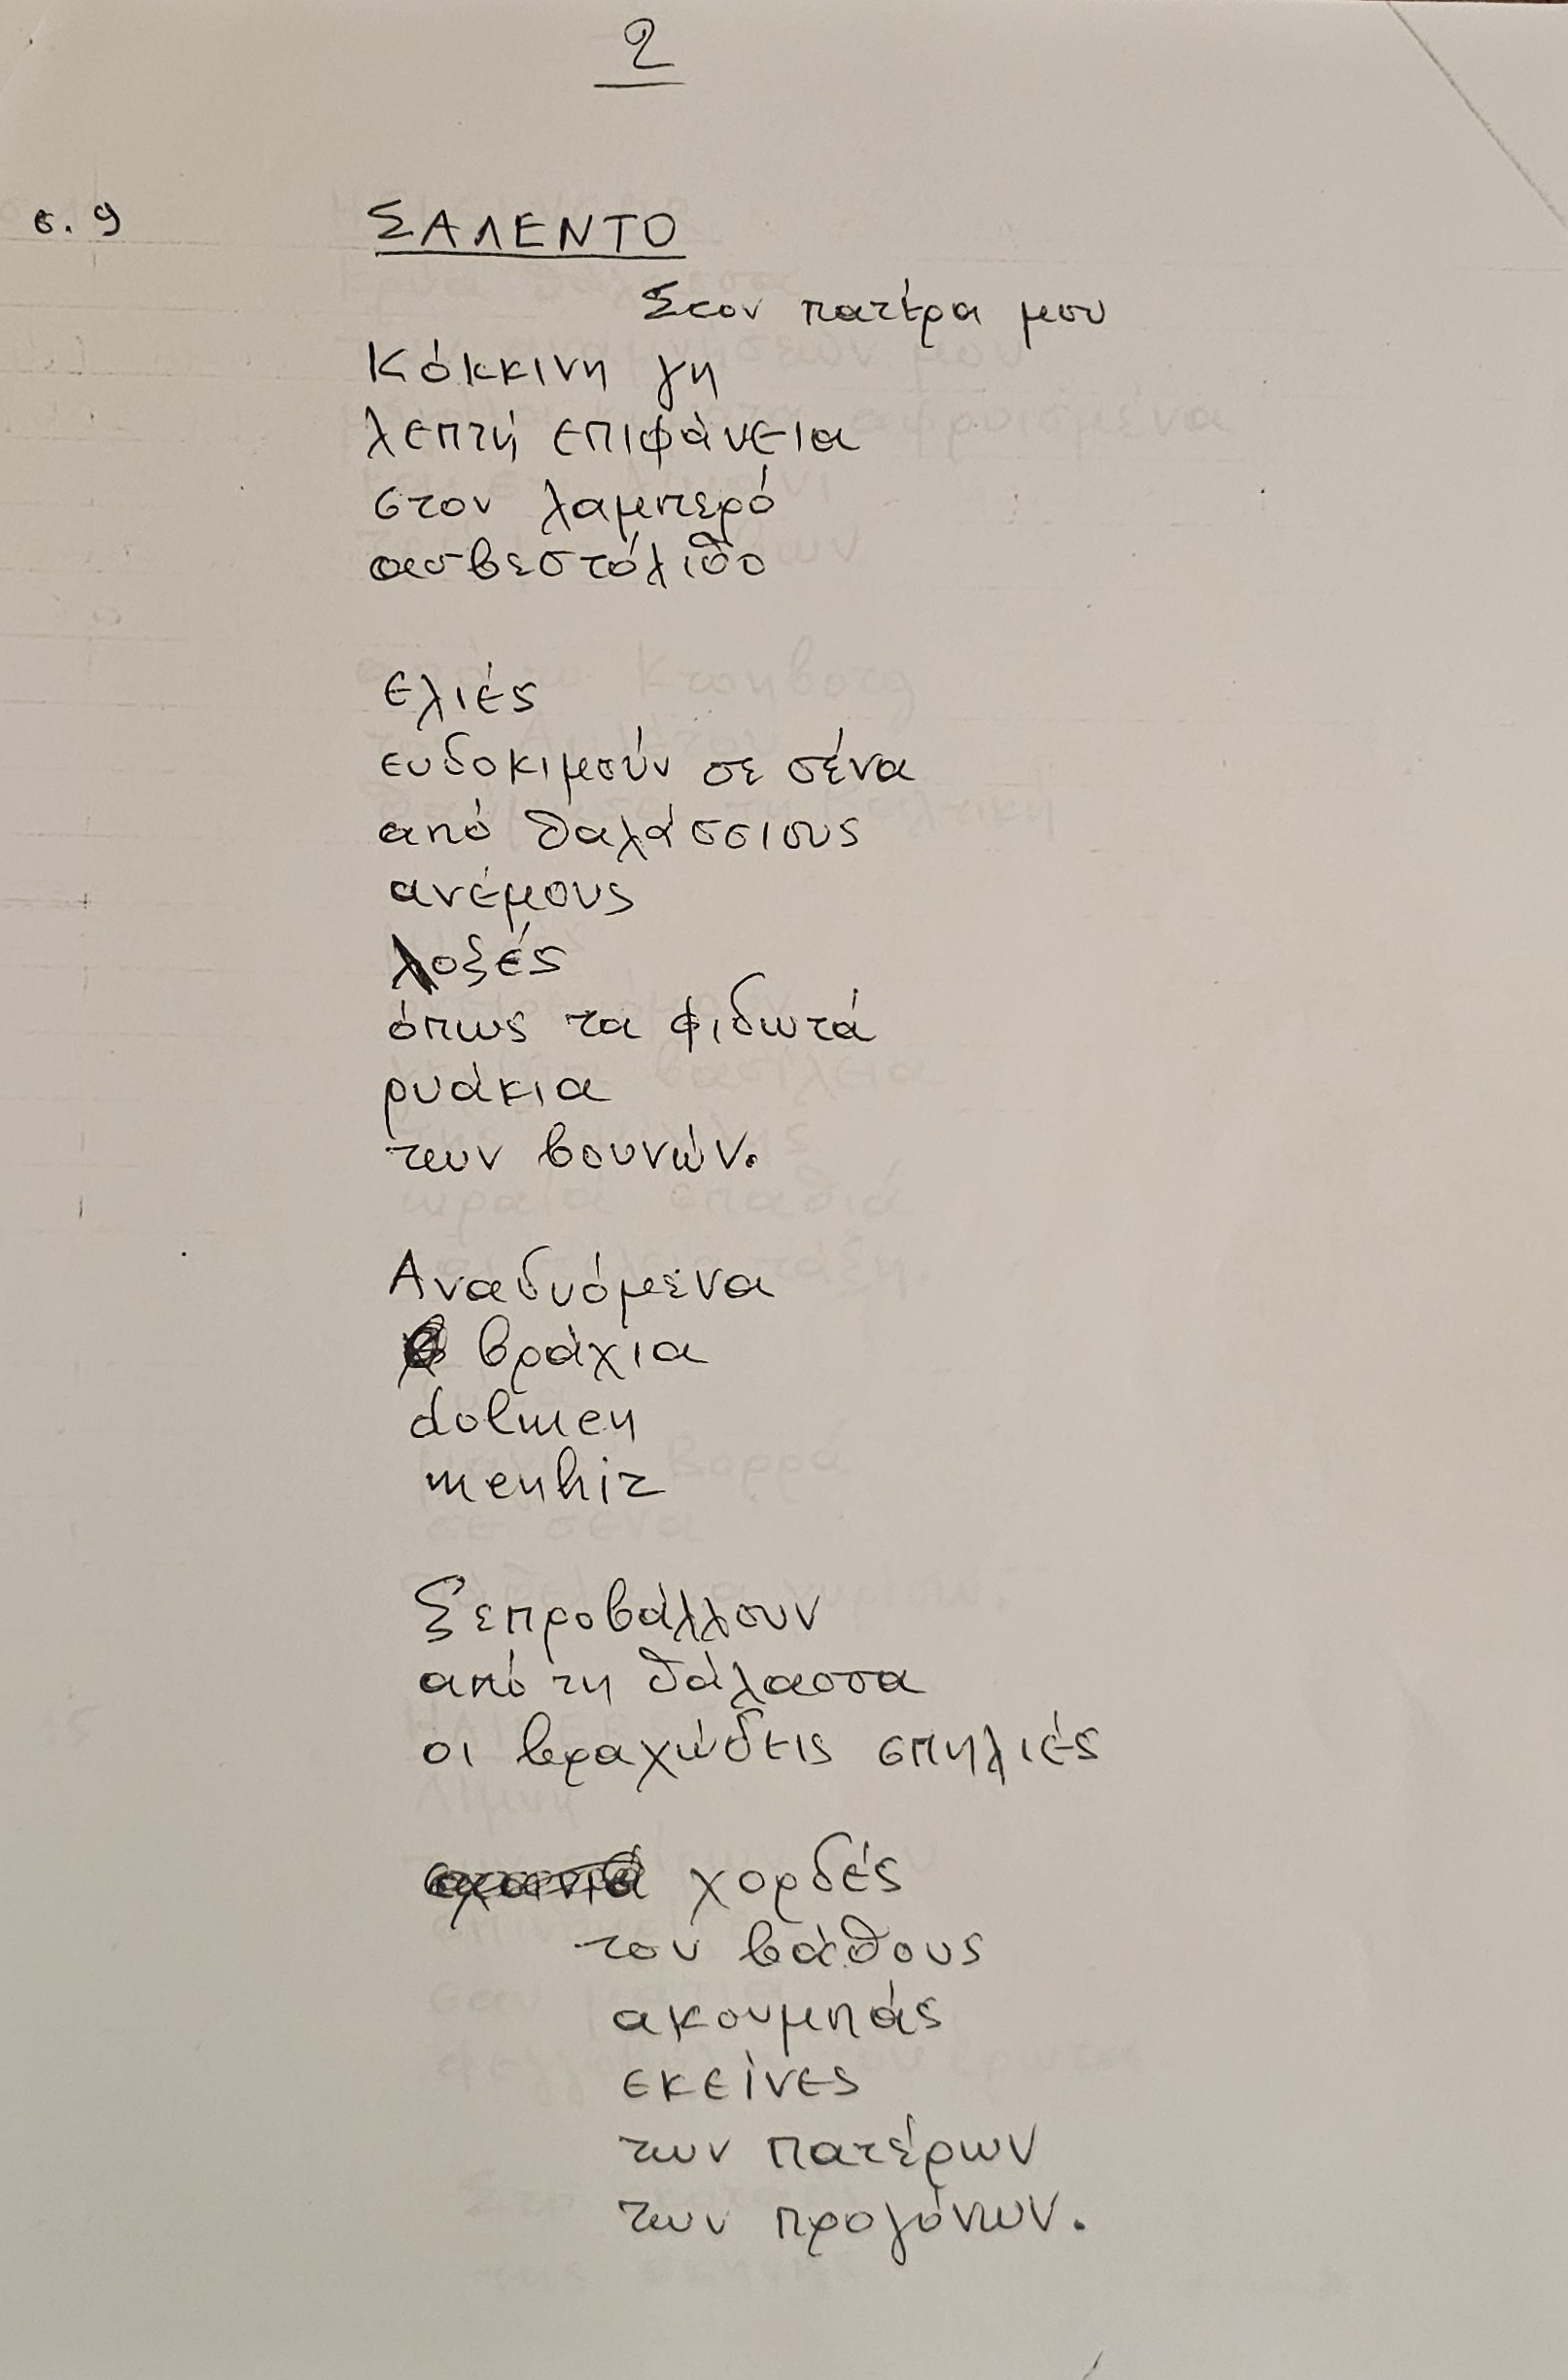 2
σ. 9
ΣΑΛΕΝΤΟ
Στον πατέρα μου
Κόκκινη γη
λεπτή επιφάνεια
στον λαμπερό
ασβεστόλιθο
Ελιές
ευδοκιμούν σε σένα
από θαλάσσιους
ανέμους
λοξές
όπως τα φιδωτά
ρυάκια
των βουνών.
Αναδυόμενα
βράχια
dolmen
menhir
Ξεπροβάλλουν
από τη θάλασσα
οι βραχώδεις σπηλιές
χορδές
του βάθους
ακουμπάς
εκείνες
των πατέρων
των προγόνων.